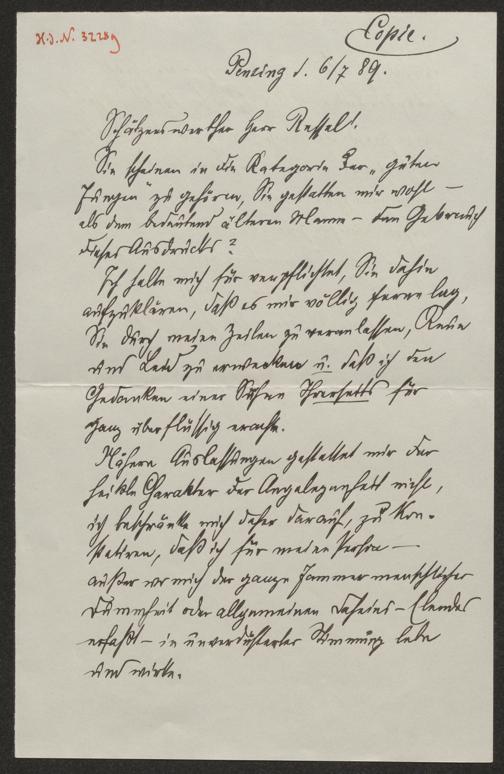 H.I.N. 32289
Copie.
Penzing d. 6/7 89.
Schätzenswerther Herr Ressel!
Sie scheinen in die Kategorie der „guten
Jungen" zu gehören, Sie gestatten mir wohl –
als dem bedeutend älteren Manne – den Gebrauch
dieses Ausdrucks?
Ich halte mich für verpflichtet, Sie dahin
aufzuklären, daß es mir völlig ferne lag,
Sie durch meine Zeilen zu veranlassen, Reue
und Leid zu erwecken u. daß ich den
Gedanken einer Sühne Ihrerseits für
ganz überflüssig erachte.
Nähere Auslassungen gestattet mir der
heikle Charakter der Angelegenheit nicht,
ich beschränke mich daher darauf, zu kon-
statiren, daß ich für meine Person –
außer wo mich der ganze Jammer menschlicher
Dummheit oder allgemeinen Daseins-Elendes
erfaßt – in unverdüsterter Stimmung lebe
und wirke.